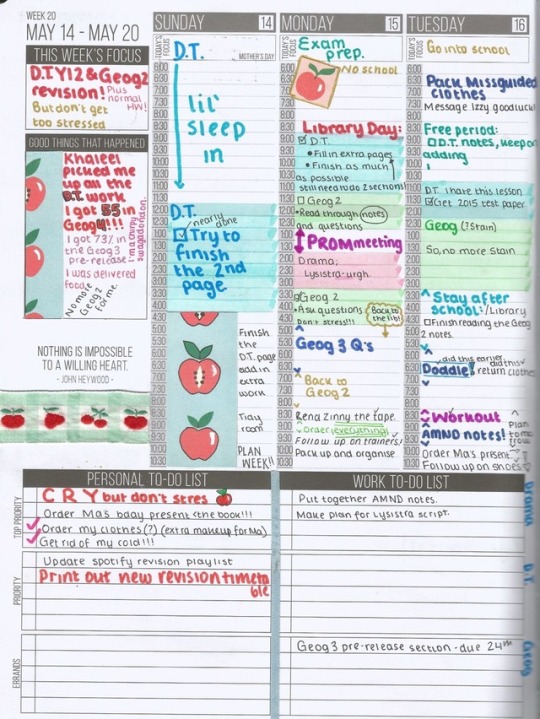 WEEK 20
MAY 14 - MAY 20
THIS WEEK'S FOCUS
D.T Y12 & Geog2
revision! Plus
normal
HW!
But don't get
too stressed
GOOD THINGS THAT HAPPENED
Khaleel
picked me
up on the
D.T. work
I got 55 in
Geog4!!!
I got 73% in
the Geog3
pre-release
I was delivered
food
No more
Geog2
for me.
NOTHING IS IMPOSSIBLE
TO A WILLING HEART.
- JOHN HEYWOOD -
SUNDAY 14
TODAY'S FOCUS
D.T.
MOTHER'S DAY
lil'
sleep
in
D.T.
nearly done
Try to
finish
the 2nd
page
Finish
the
D.T. page
add in
extra
work
Tidy
room
PLAN
WEEK!!
MONDAY 15
TODAY'S FOCUS
Exam
prep.
No school
Library Day:
D.T.
• Fill in extra pages
• Finish as much
as possible
still need to do 2 sections!
Geog 2
• Read through notes
and questions
PROM meeting
Drama:
Lysistra-urgh.
Geog 2
• Ask questions
Don't stress!!!
Back to
the lib!
Geog 3 Q's
Back to
Geog 2
Rena Zinny the tape.
Order everything!
Follow up on trainers!
Pack up and organise
TUESDAY 16
TODAY'S FOCUS
Go into school
Pack Missguided
clothes
Message Izzy goodluck!
Free period:
D.T. notes, keep on
adding
D.T. I hate this lesson
Get 2015 test paper.
Geog (?Stain)
So, no more stain
Stay after
school:/Library
Finishing reading the Geog
2 notes.
did this earlier
Doddle!
did this
return clothes
Workout
AMND notes!
Order Ma's present
Follow up on shoes
PERSONAL TO-DO LIST
TOP PRIORITY
CRY but don't stres
Order Ma's bday present (the book!!!)
Order my clothes(?) (extra makeup for Ma)
Get rid of my cold!!!
PRIORITY
Update spotify revision playlist
Print out new revision timeta
ble
ERRANDS
WORK TO-DO LIST
Put together AMND notes.
Make plan for Lysistra script.
Geog 3 pre-release section - due 24th
Drama
D.T.
Geog